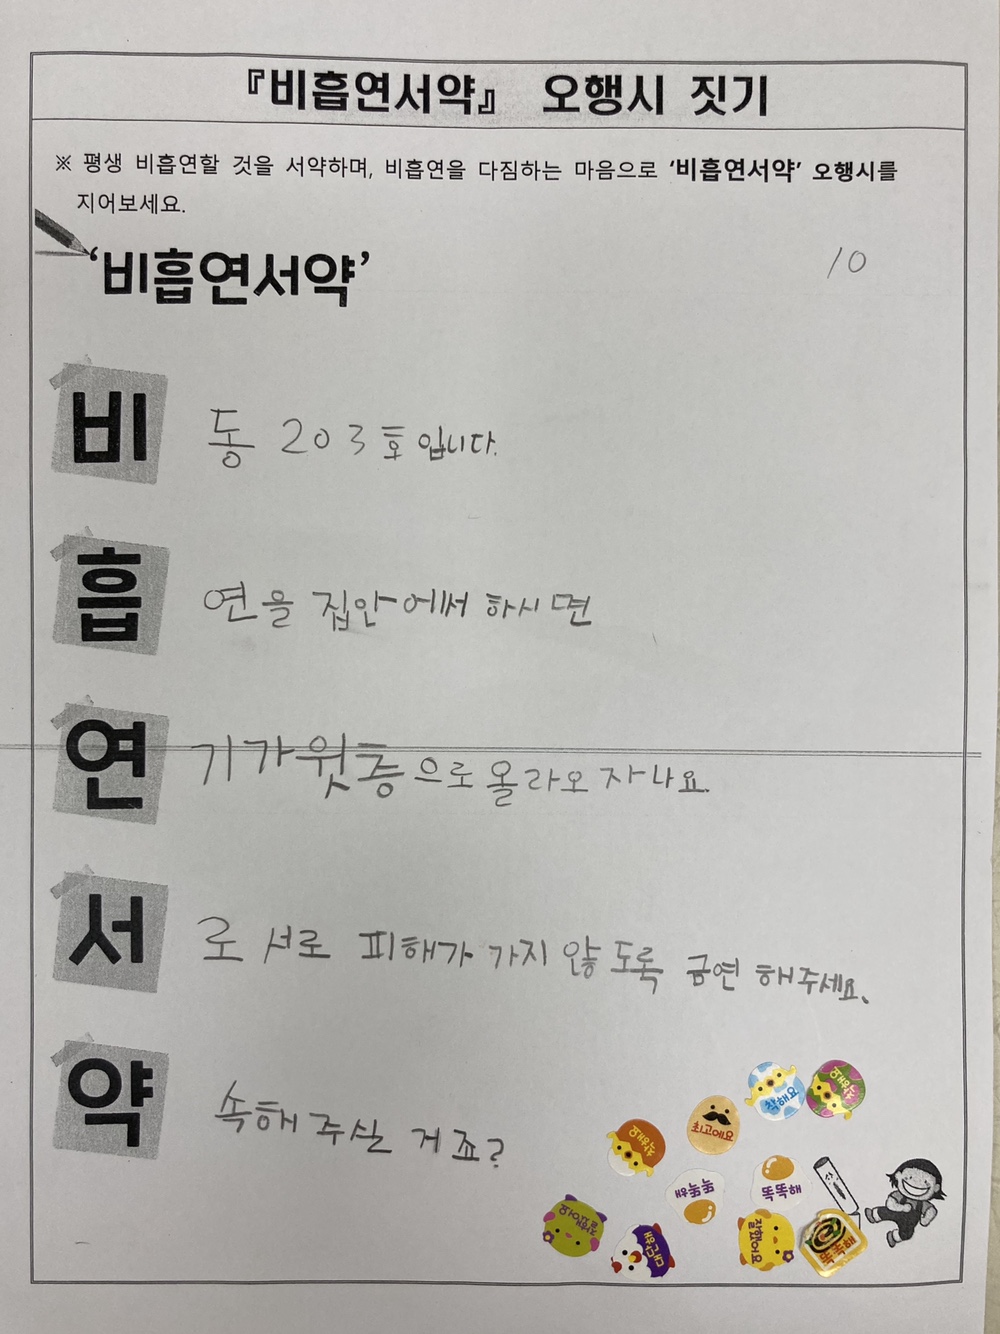 『비흡연서약』 오행시 짓기
※ 평생 비흡연할 것을 서약하며, 비흡연을 다짐하는 마음으로 '비흡연서약' 오행시를
지어보세요.
'비흡연서약'
10
비 동 203호입니다.
흡 연을 집안에서 하시면
연 기가 윗층으로 올라오자나요.
서 로 서로 피해가 가지 않도록 금연 해주세요.
약 속해 주실 거죠?
착해요
최고에요
똑똑해
똑똑해
잘했어요
대단해
잘했어요